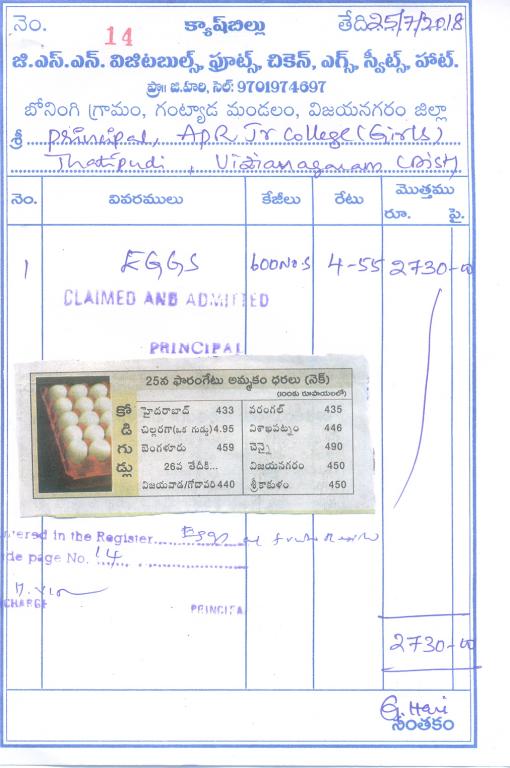 నెం. 14 క్యాష్‌బిల్లు తేది 25/7/2018
జి.ఎస్.ఎన్. విజిటబుల్స్, ఫ్రూట్స్, చికెన్, ఎగ్స్, స్వీట్స్, హాట్.
ప్రొ॥ జి.హరి, సెల్: 9701974697
బోనంగి గ్రామం, గంట్యాడ మండలం, విజయనగరం జిల్లా
శ్రీ Principal, APR Jr College (Girls)
Thatipudi, Vizianagaram (Dist)
నెం. వివరములు కేజీలు రేటు మొత్తము
రూ. పై.
1 EGGS 600 No.s 4-55 2730-00
CLAIMED AND ADMITTED
PRINCIPAL
25వ ఫారంగేటు అమ్మకం ధరలు (నెక్)
(100కు రూపాయలలో)
కోడిగుడ్లు
హైదరాబాద్ 433 వరంగల్ 435
చిల్లరగా(ఒక గుడ్డు) 4.95 విశాఖపట్నం 446
బెంగళూరు 459 చెన్నై 490
26వ తేదీకి... విజయనగరం 450
విజయవాడ/గోదావరి 440 శ్రీకాకుళం 450
tered in the Register
de page No. 14
CHARGE PRINCIPA
2730-00
G. Hari
సంతకం